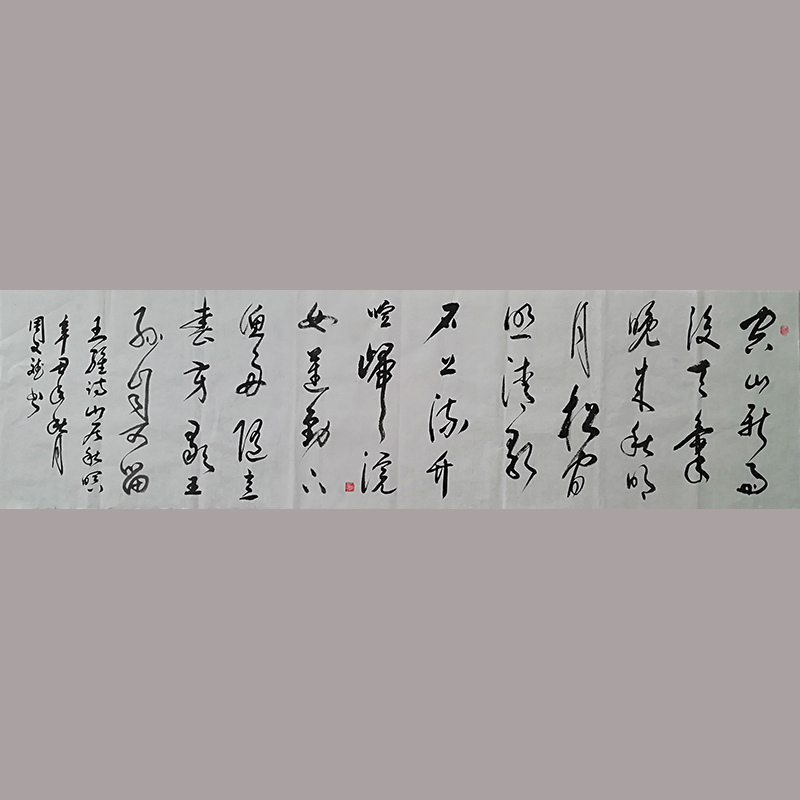 空山新雨
後天氣
晚来秋明
月松間
照清泉
石上流竹
喧歸浣
女蓮動下
漁舟随意
春芳歇王
孫自可留
王維詩山居秋暝
辛丑年秋月
周文书